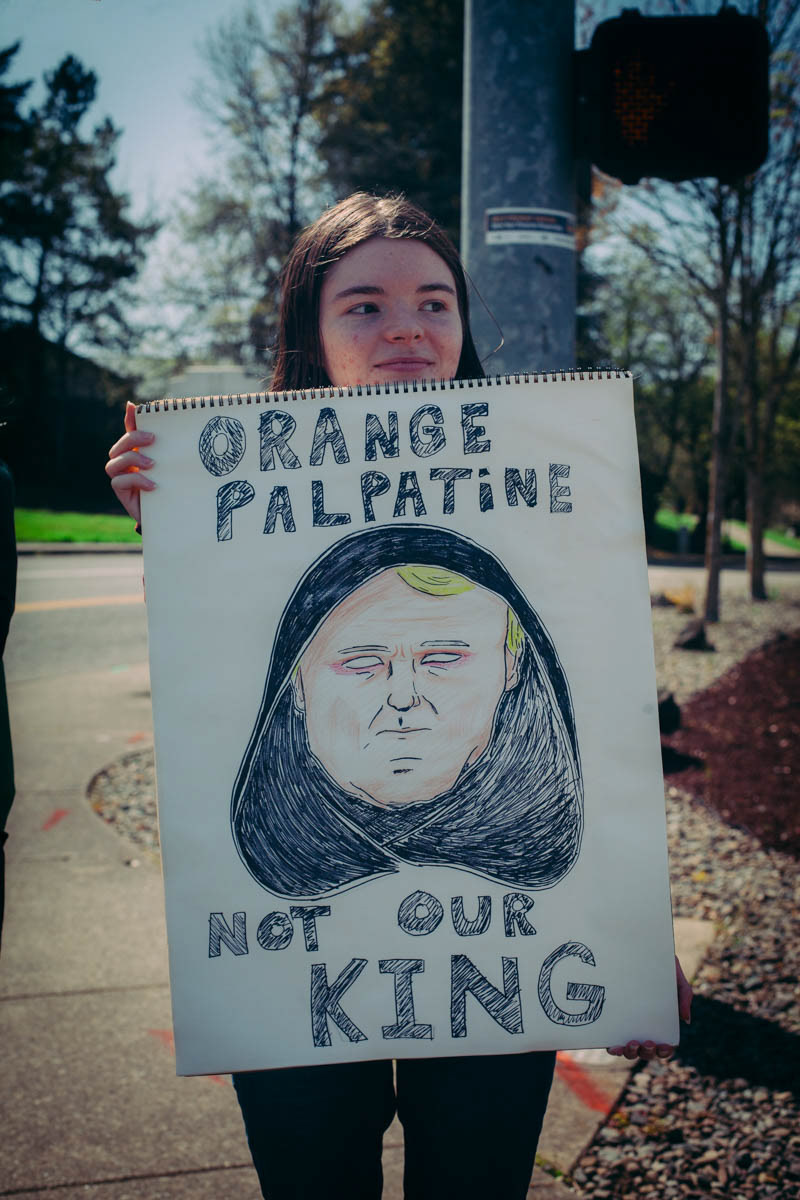 ORANGE
PALPATiNE
NOT OUR
KING